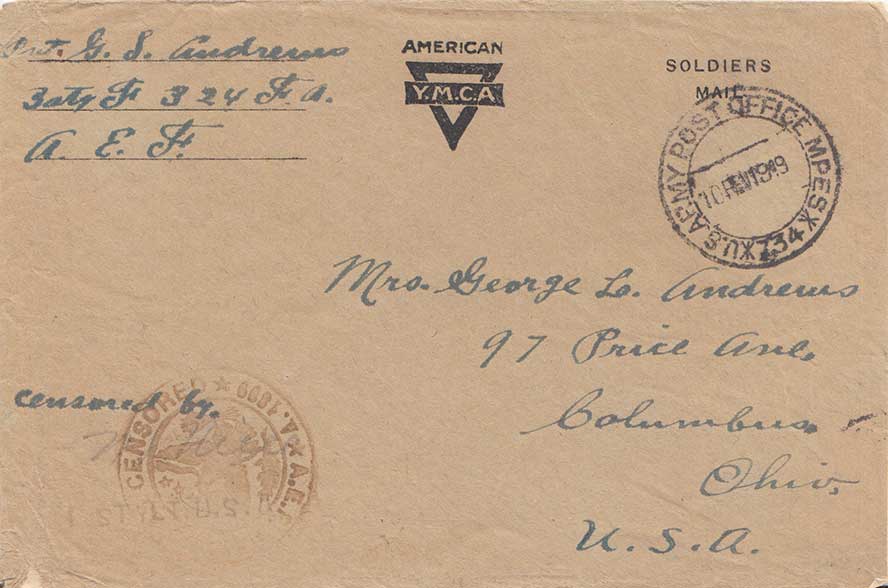 Pvt. G. S. Andrews
Baty F 324 F.A.
A. E. F.
AMERICAN
Y.M.C.A
SOLDIERS
MAIL
U.S. ARMY POST OFFICE MPES * 734 *
1919
Mrs. George L. Andrews
97 Price Ave.
Columbus
Ohio,
U. S. A.
censored by.
CENSORED * A.1899 * A.E.
1 ST. LT. U.S.